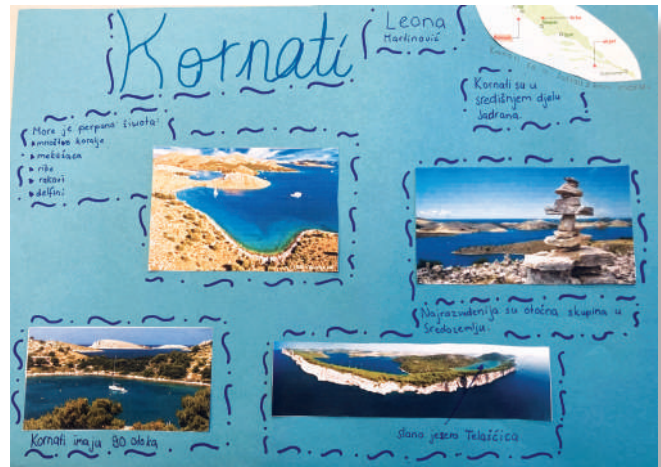 Kornati
Leona
Martinović
Kornati su u
središnjem djelu
Jadrana.
More je perpuna života!
mnoštvo koralje
mekušaca
ribe
rakovi
delfini
Najrazvuđenija su otočna skupina u
Sredozemlju.
Kornati imaja 80 otoka
slano jezero Telašćica